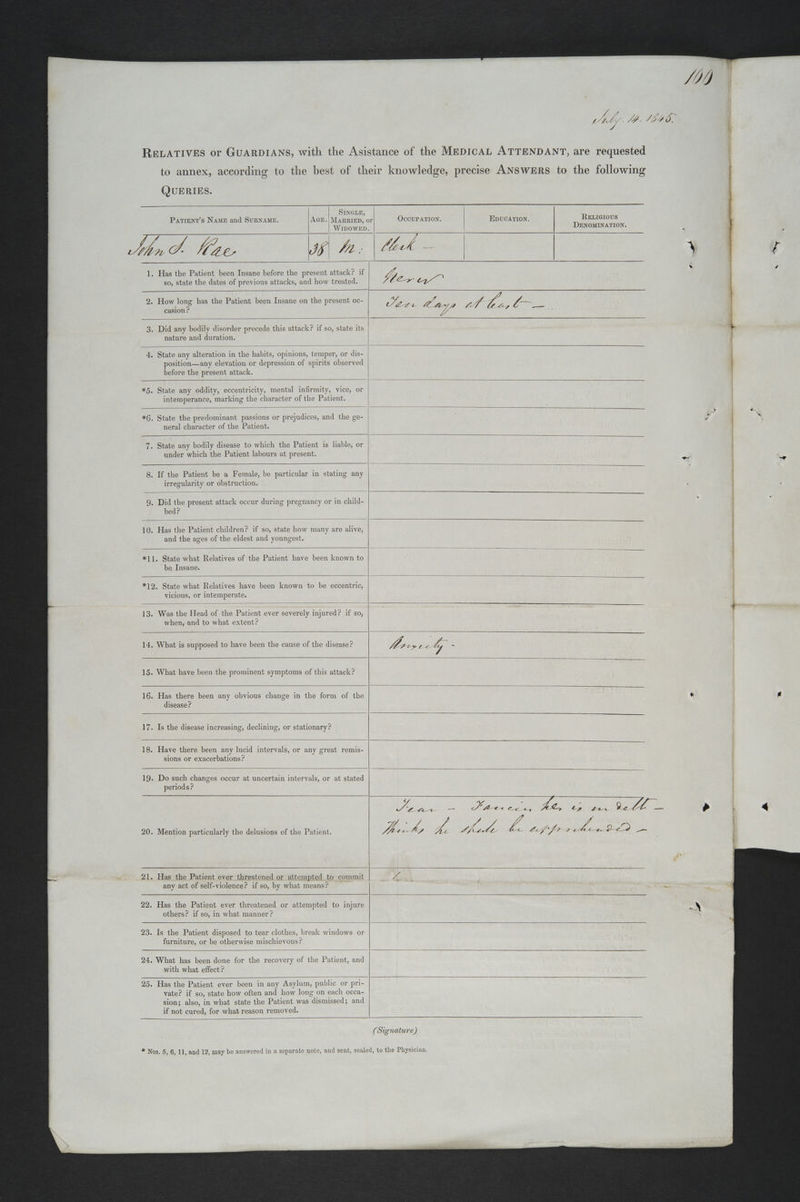 100
July. 14. 1845.
RELATIVES or GUARDIANS, with the Asistance of the MEDICAL ATTENDANT, are requested
to annex, according to the best of their knowledge, precise ANSWERS to the following
QUERIES.
PATIENT'S NAME and SURNAME.
AGE.
SINGLE,
MARRIED, or
WIDOWED.
OCCUPATION.
EDUCATION.
RELIGIOUS
DENOMINATION.
John S. Rae
38
M:
Clerk —
1. Has the Patient been Insane before the present attack? if
so, state the dates of previous attacks, and how treated.
Never
2. How long has the Patient been Insane on the present oc-
casion?
Ten days at least —
3. Did any bodily disorder precede this attack? if so, state its
nature and duration.
4. State any alteration in the habits, opinions, temper, or dis-
position—any elevation or depression of spirits observed
before the present attack.
*5. State any oddity, eccentricity, mental infirmity, vice, or
intemperance, marking the character of the Patient.
*6. State the predominant passions or prejudices, and the ge-
neral character of the Patient.
7. State any bodily disease to which the Patient is liable, or
under which the Patient labours at present.
8. If the Patient be a Female, be particular in stating any
irregularity or obstruction.
9. Did the present attack occur during pregnancy or in child-
bed?
10. Has the Patient children? if so, state how many are alive,
and the ages of the eldest and youngest.
*11. State what Relatives of the Patient have been known to
be Insane.
*12. State what Relatives have been known to be eccentric,
vicious, or intemperate.
13. Was the Head of the Patient ever severely injured? if so,
when, and to what extent?
14. What is supposed to have been the cause of the disease?
Anxiety -
15. What have been the prominent symptoms of this attack?
16. Has there been any obvious change in the form of the
disease?
17. Is the disease increasing, declining, or stationary?
18. Have there been any lucid intervals, or any great remis-
sions or exacerbations?
19. Do such changes occur at uncertain intervals, or at stated
periods?
20. Mention particularly the delusions of the Patient.
Fear — Fancies he is in debt —
Thinks he shall be apprehended —
21. Has the Patient ever threatened or attempted to commit
any act of self-violence? if so, by what means?
22. Has the Patient ever threatened or attempted to injure
others? if so, in what manner?
23. Is the Patient disposed to tear clothes, break windows or
furniture, or be otherwise mischievous?
24. What has been done for the recovery of the Patient, and
with what effect?
25. Has the Patient ever been in any Asylum, public or pri-
vate? if so, state how often and how long on each occa-
sion; also, in what state the Patient was dismissed; and
if not cured, for what reason removed.
(Signature)
* Nos. 5, 6, 11, and 12, may be answered in a separate note, and sent, sealed, to the Physician.